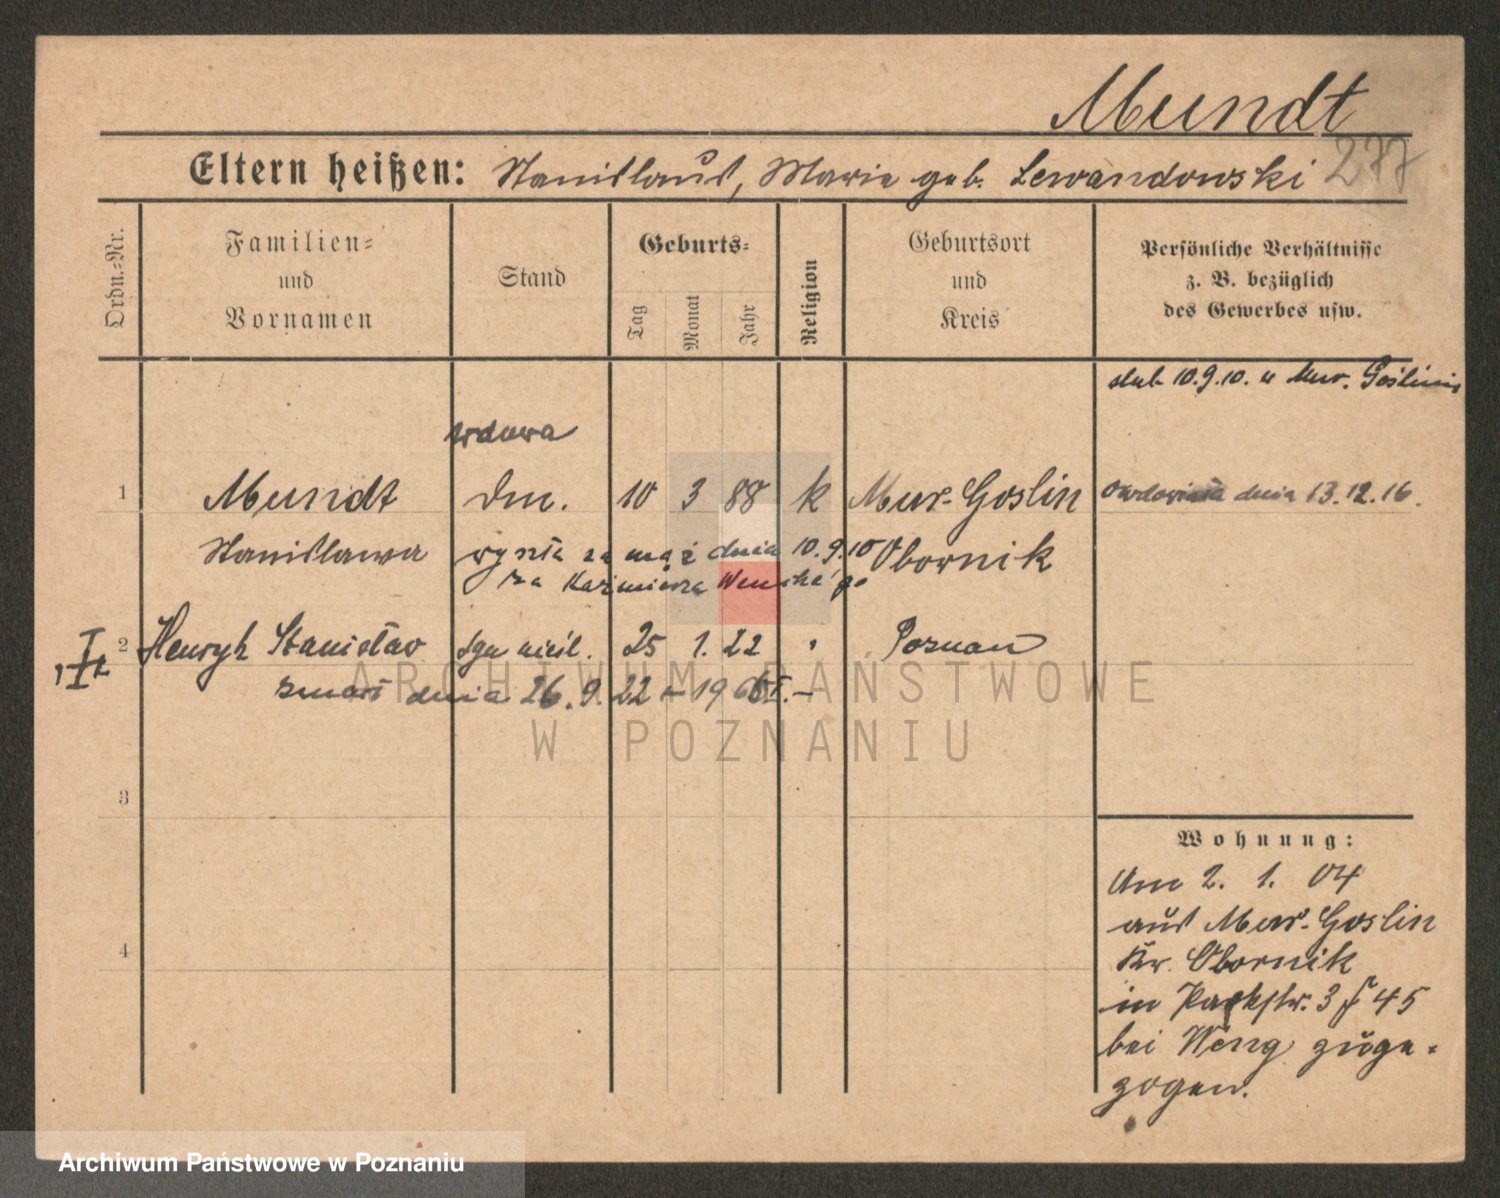 Mundt
277
Eltern heißen: Stanislaus, Marie geb. Lewandowski
Ordn.-Nr.
Familien-
und
Vornamen
Stand
Geburts-
Tag
Monat
Jahr
Religion
Geburtsort
und
Kreis
Persönliche Verhältnisse
z. B. bezüglich
des Gewerbes usw.
ślub 10.9.10. w Mur. Goślinie
wdowa
1 Mundt Dm. 10 3 88 k Mur.-Goslin owdowiała dnia 13.12.16.
Stanislawa wyszła za mąż dnia 10.9.10 Obornik
za Kaźmierza Wenskiego
2 Henryk Stanisław syn nieśl. 25 1. 22 " Poznań
zmarł dnia 26.9.22 – 19
3
4
Wohnung:
Am 2. 1. 04
aus Mur.-Goslin
Kr. Obornik
in Parkstr. 3 45
bei Weng zuge-
zogen.
ARCHIWUM PAŃSTWOWE
W POZNANIU
Archiwum Państwowe w Poznaniu